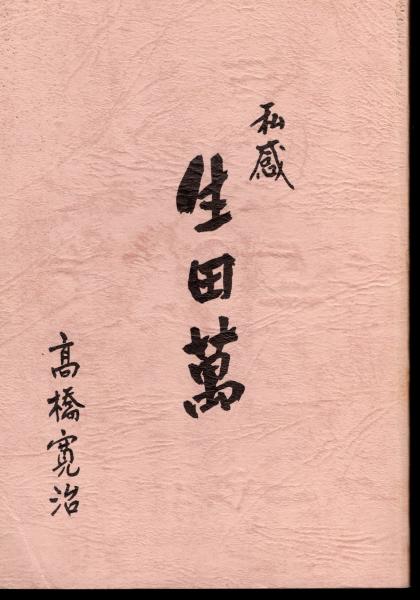 私感
生田萬
髙橋寛治